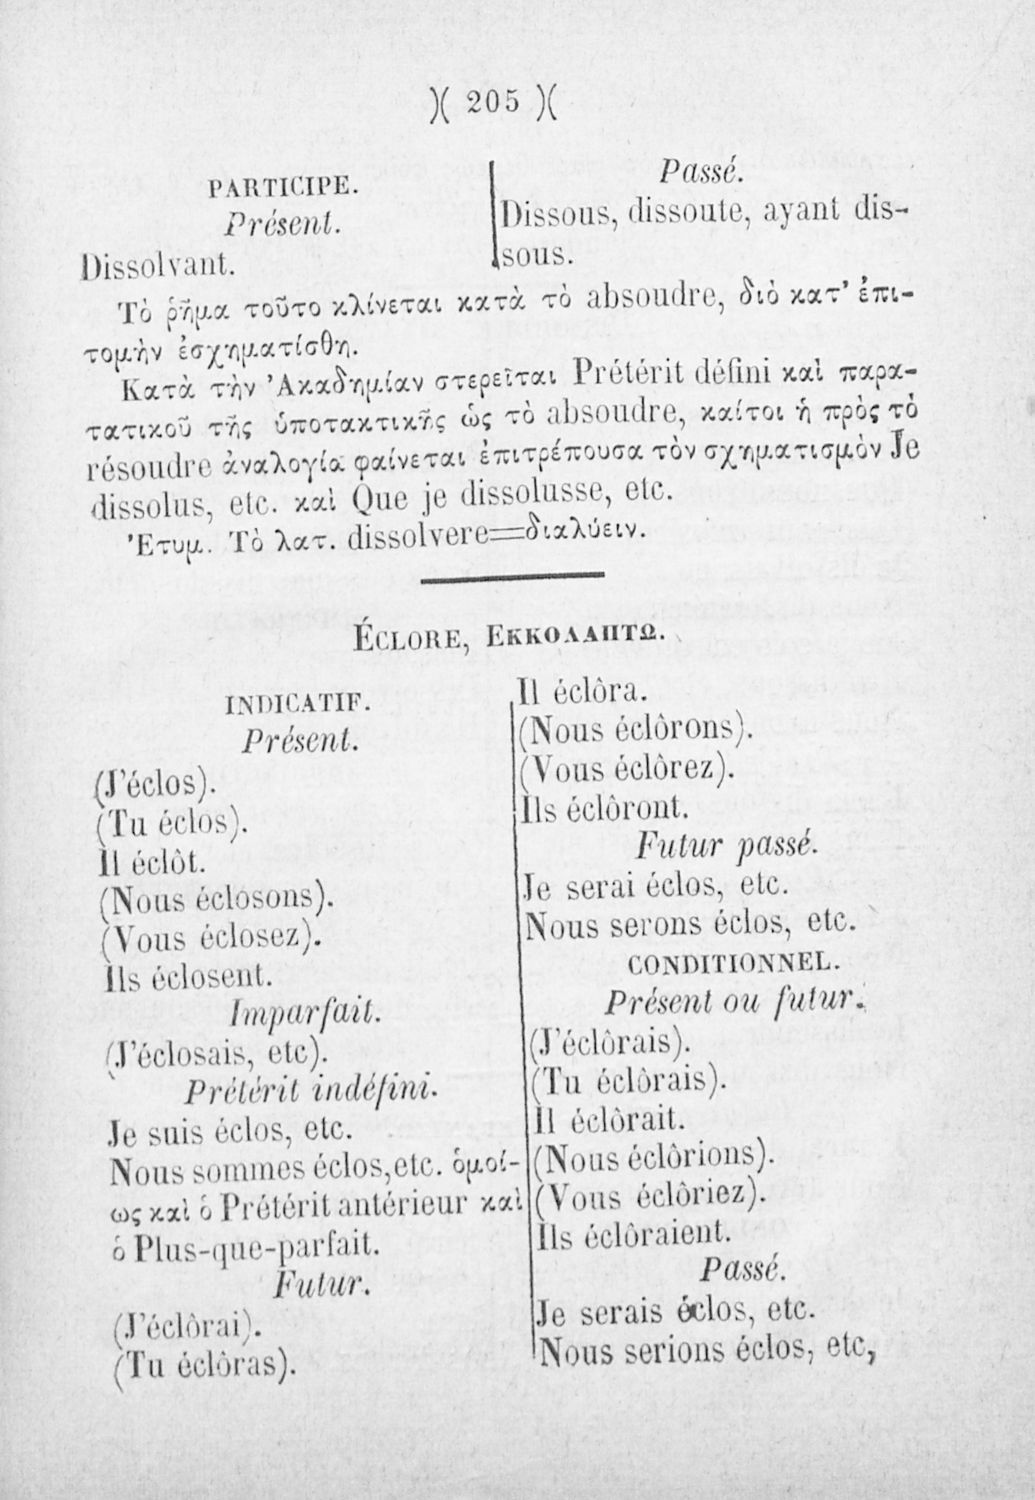 )( 205 )(
PARTICIPE.
Présent.
Dissolvant.
Passé.
Dissous, dissoute, ayant dis-
sous.
Τὸ ῥῆμα τοῦτο κλίνεται κατὰ τὸ absoudre, διὸ κατ’ ἐπι-
τομὴν ἐσχηματίσθη.
Κατὰ τὴν Ἀκαδημίαν στερεῖται Prétérit défini καὶ παρα-
τατικοῦ τῆς ὑποτακτικῆς ὡς τὸ absoudre, καίτοι ἡ πρὸς τὸ
résoudre ἀναλογία φαίνεται ἐπιτρέπουσα τὸν σχηματισμὸν Je
dissolus, etc. καὶ Que je dissolusse, etc.
Ἐτυμ. Τὸ λατ. dissolvere=διαλύειν.
ÉCLORE, ΕΚΚΟΛΑΠΤΩ.
INDICATIF.
Présent.
(J’éclos).
(Tu éclos).
Il éclôt.
(Nous éclosons).
(Vous éclosez).
Ils éclosent.
Imparfait.
(J’éclosais, etc).
Prétérit indéfini.
Je suis éclos, etc.
Nous sommes éclos, etc. ὁμοί-
ως καὶ ὁ Prétérit antérieur καὶ
ὁ Plus-que-parfait.
Futur.
(J’éclôrai).
(Tu éclôras).
Il éclôra.
(Nous éclôrons).
(Vous éclôrez).
Ils éclôront.
Futur passé.
Je serai éclos, etc.
Nous serons éclos, etc.
CONDITIONNEL.
Présent ou futur.
(J’éclôrais).
(Tu éclôrais).
Il éclôrait.
(Nous éclôrions).
(Vous éclôriez).
Ils éclôraient.
Passé.
Je serais éclos, etc.
Nous serions éclos, etc,